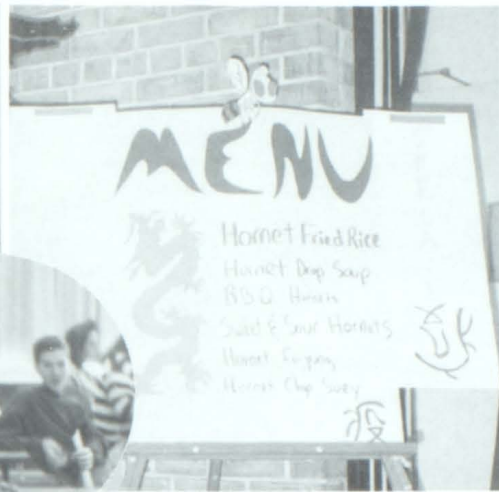 MENU
Hornet Fried Rice
Hornet Drop Soup
B.B.Q. Hornets
Sweet & Sour Hornets
Hornet
Hornet Chop Suey